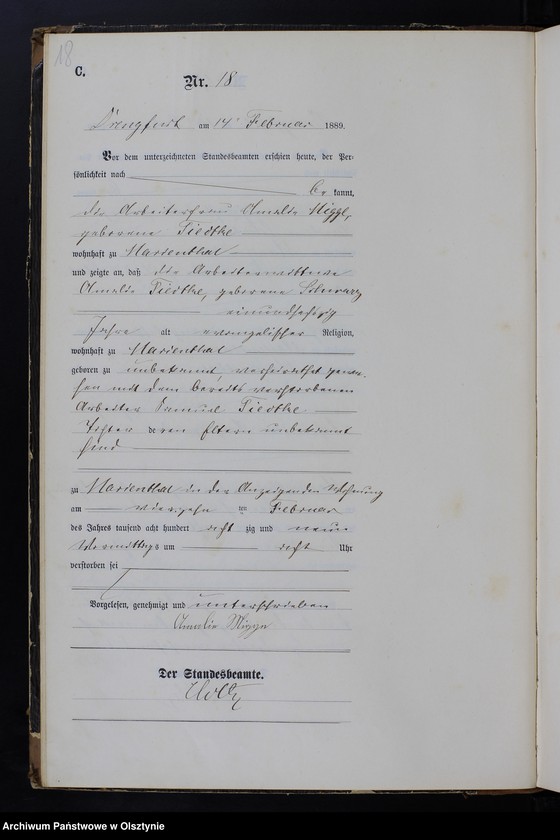 18
C.
Nr. 18
Drengfurt am 14. Februar 1889.
Vor dem unterzeichneten Standesbeamten erschien heute, der Per-
sönlichkeit nach
be kannt,
die Arbeiterfrau Amalie
geborene Tiedtke
wohnhaft zu Marienthal
und zeigte an, daß die Arbeiterwittwe
Amalie Tiedtke, geborene Schwarz
einundsechzig
Jahre alt evangelischer Religion,
wohnhaft zu Marienthal
geboren zu unbekannt, verheirathet gewe-
sen mit dem bereits verstorbenen
Arbeiter Samuel Tiedtke
Tochter deren Eltern unbekannt
sind
zu Marienthal in der Anzeigenden Wohnung
am vierzehn ten Februar
des Jahres tausend acht hundert acht zig und neun
Vormittags um acht Uhr
verstorben sei
Vorgelesen, genehmigt und unterschrieben
Amalie
Der Standesbeamte.
Archiwum Państwowe w Olsztynie